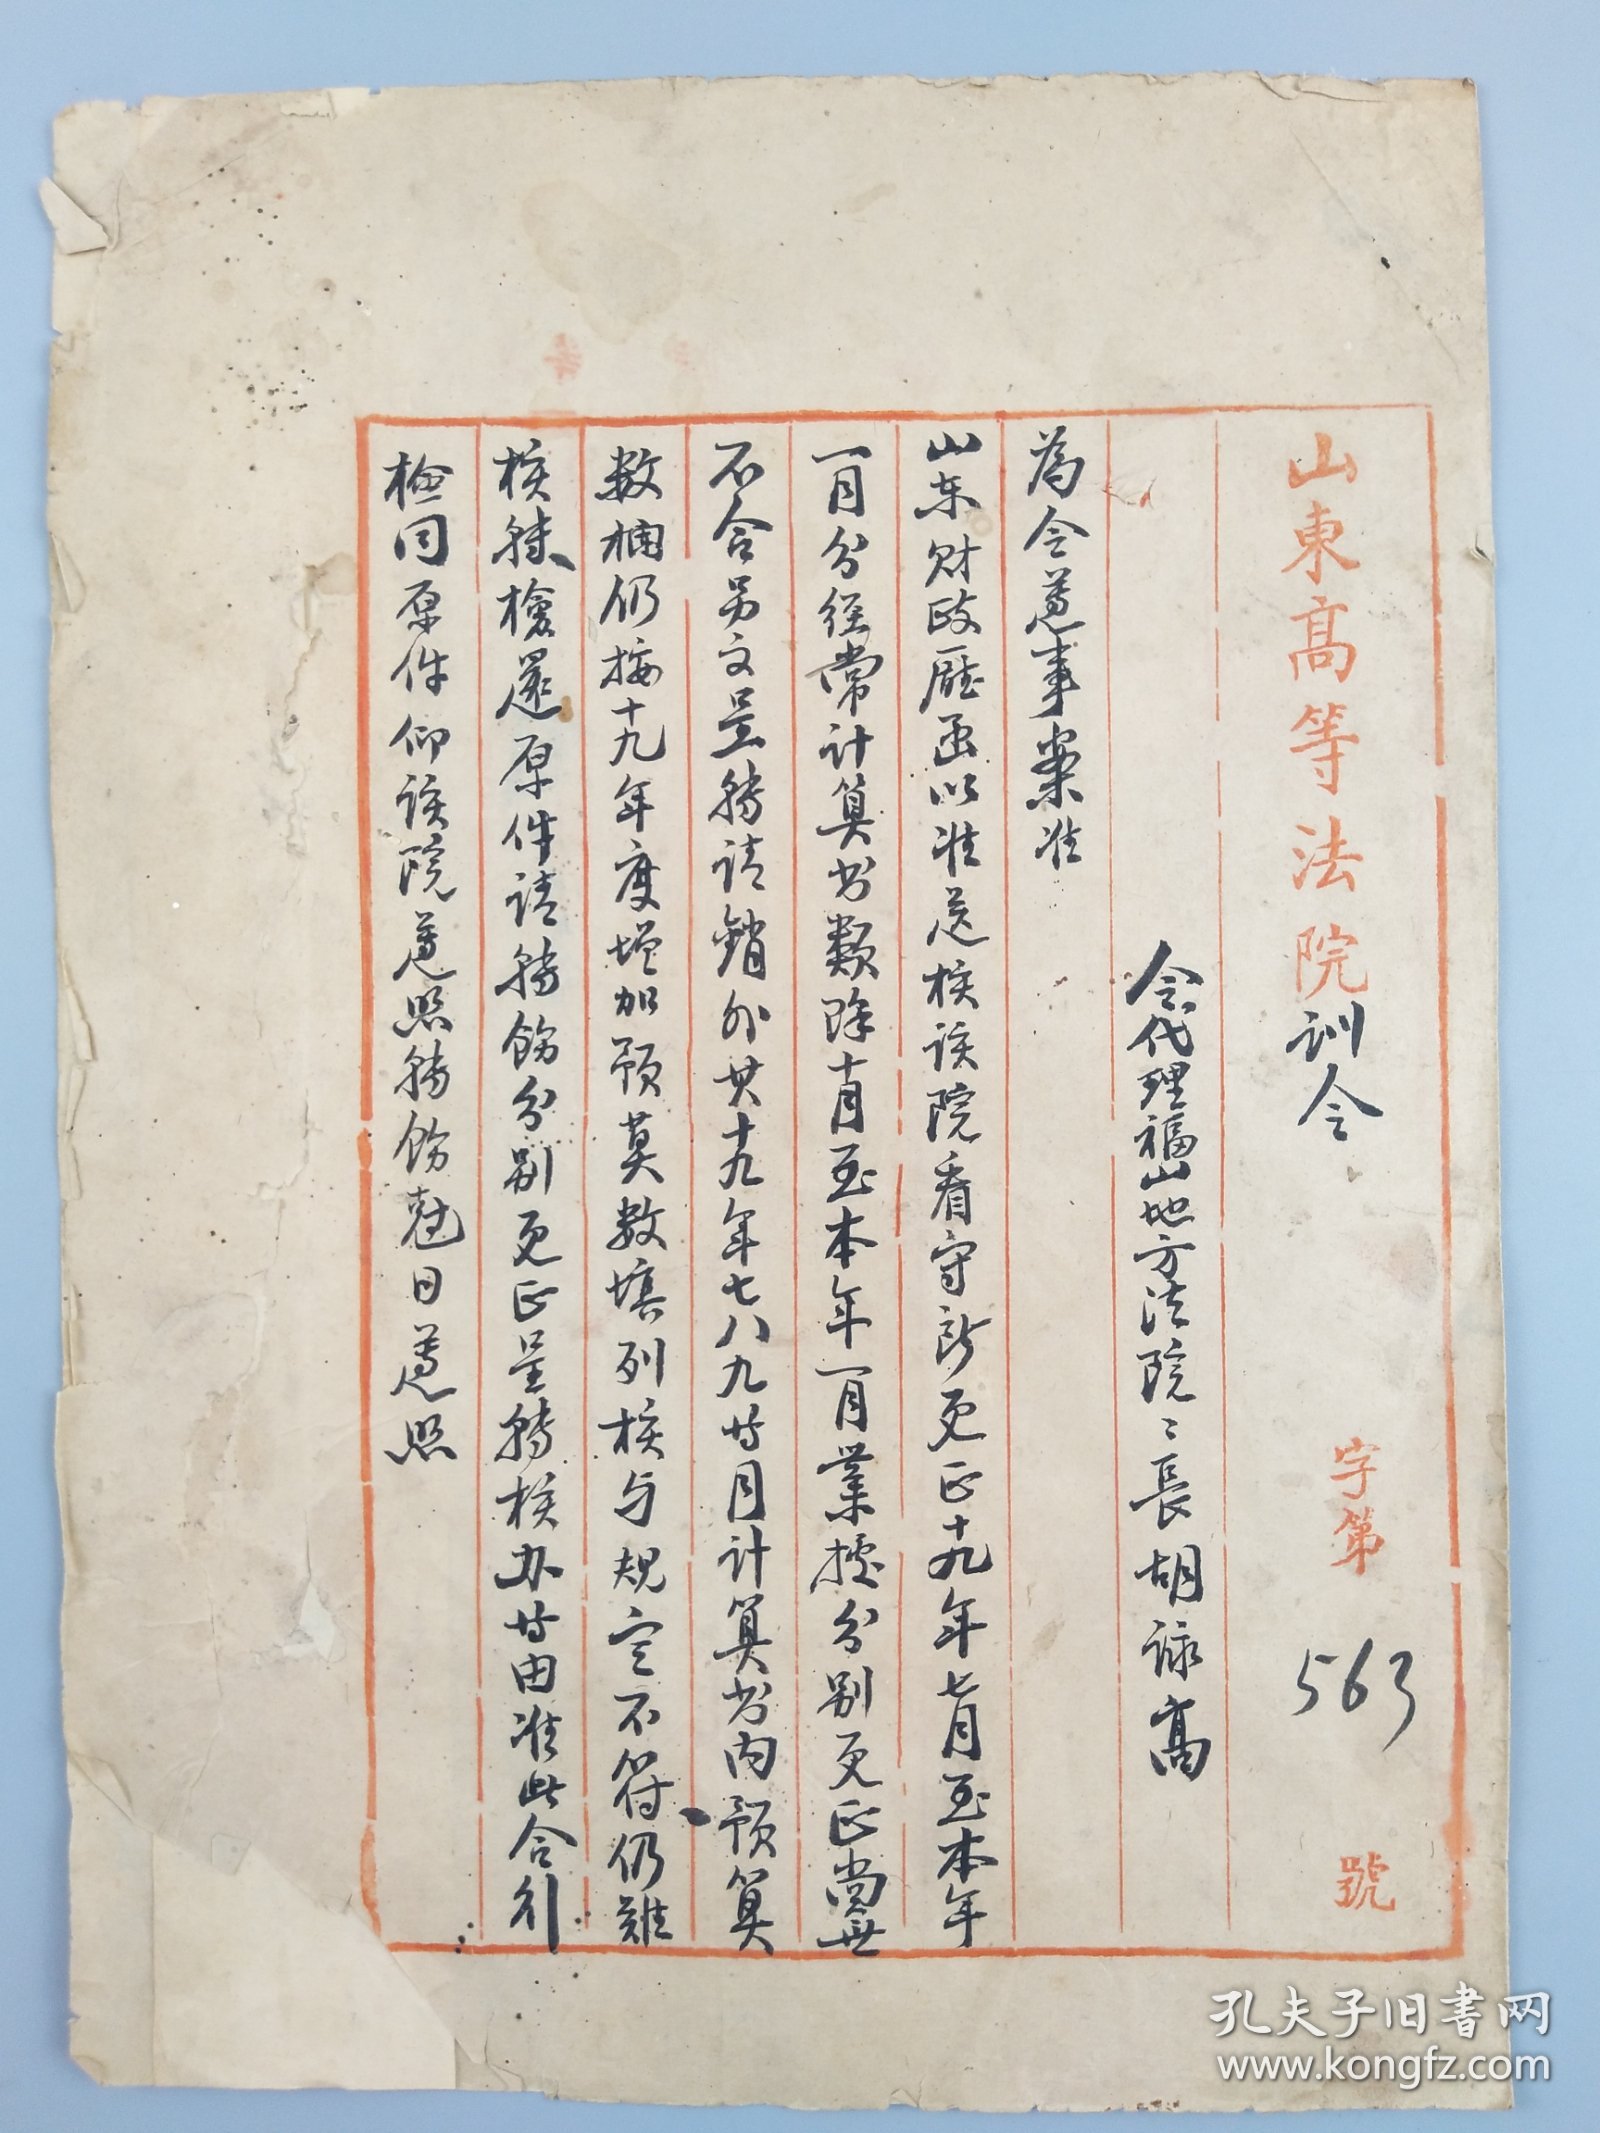 山東高等法院訓令 字第563號
令代理福山地方法院〻長胡詠高
為令遵事案准
山东財政廳函以准送核該院看守所更正十九年七月至本年
一月分經常計算书類除十月至本年一月業據分別更正尚無
不合另文呈轉請銷外其十九年七八九等月計算书内預算
数欄仍按十九年度增加預算数填列核与規定不符仍難
核轉檢還原件請轉飭分別更正呈轉核办等由准此合行
檢同原件仰該院遵照轉飭尅日遵照
孔夫子旧書网
www.kongfz.com